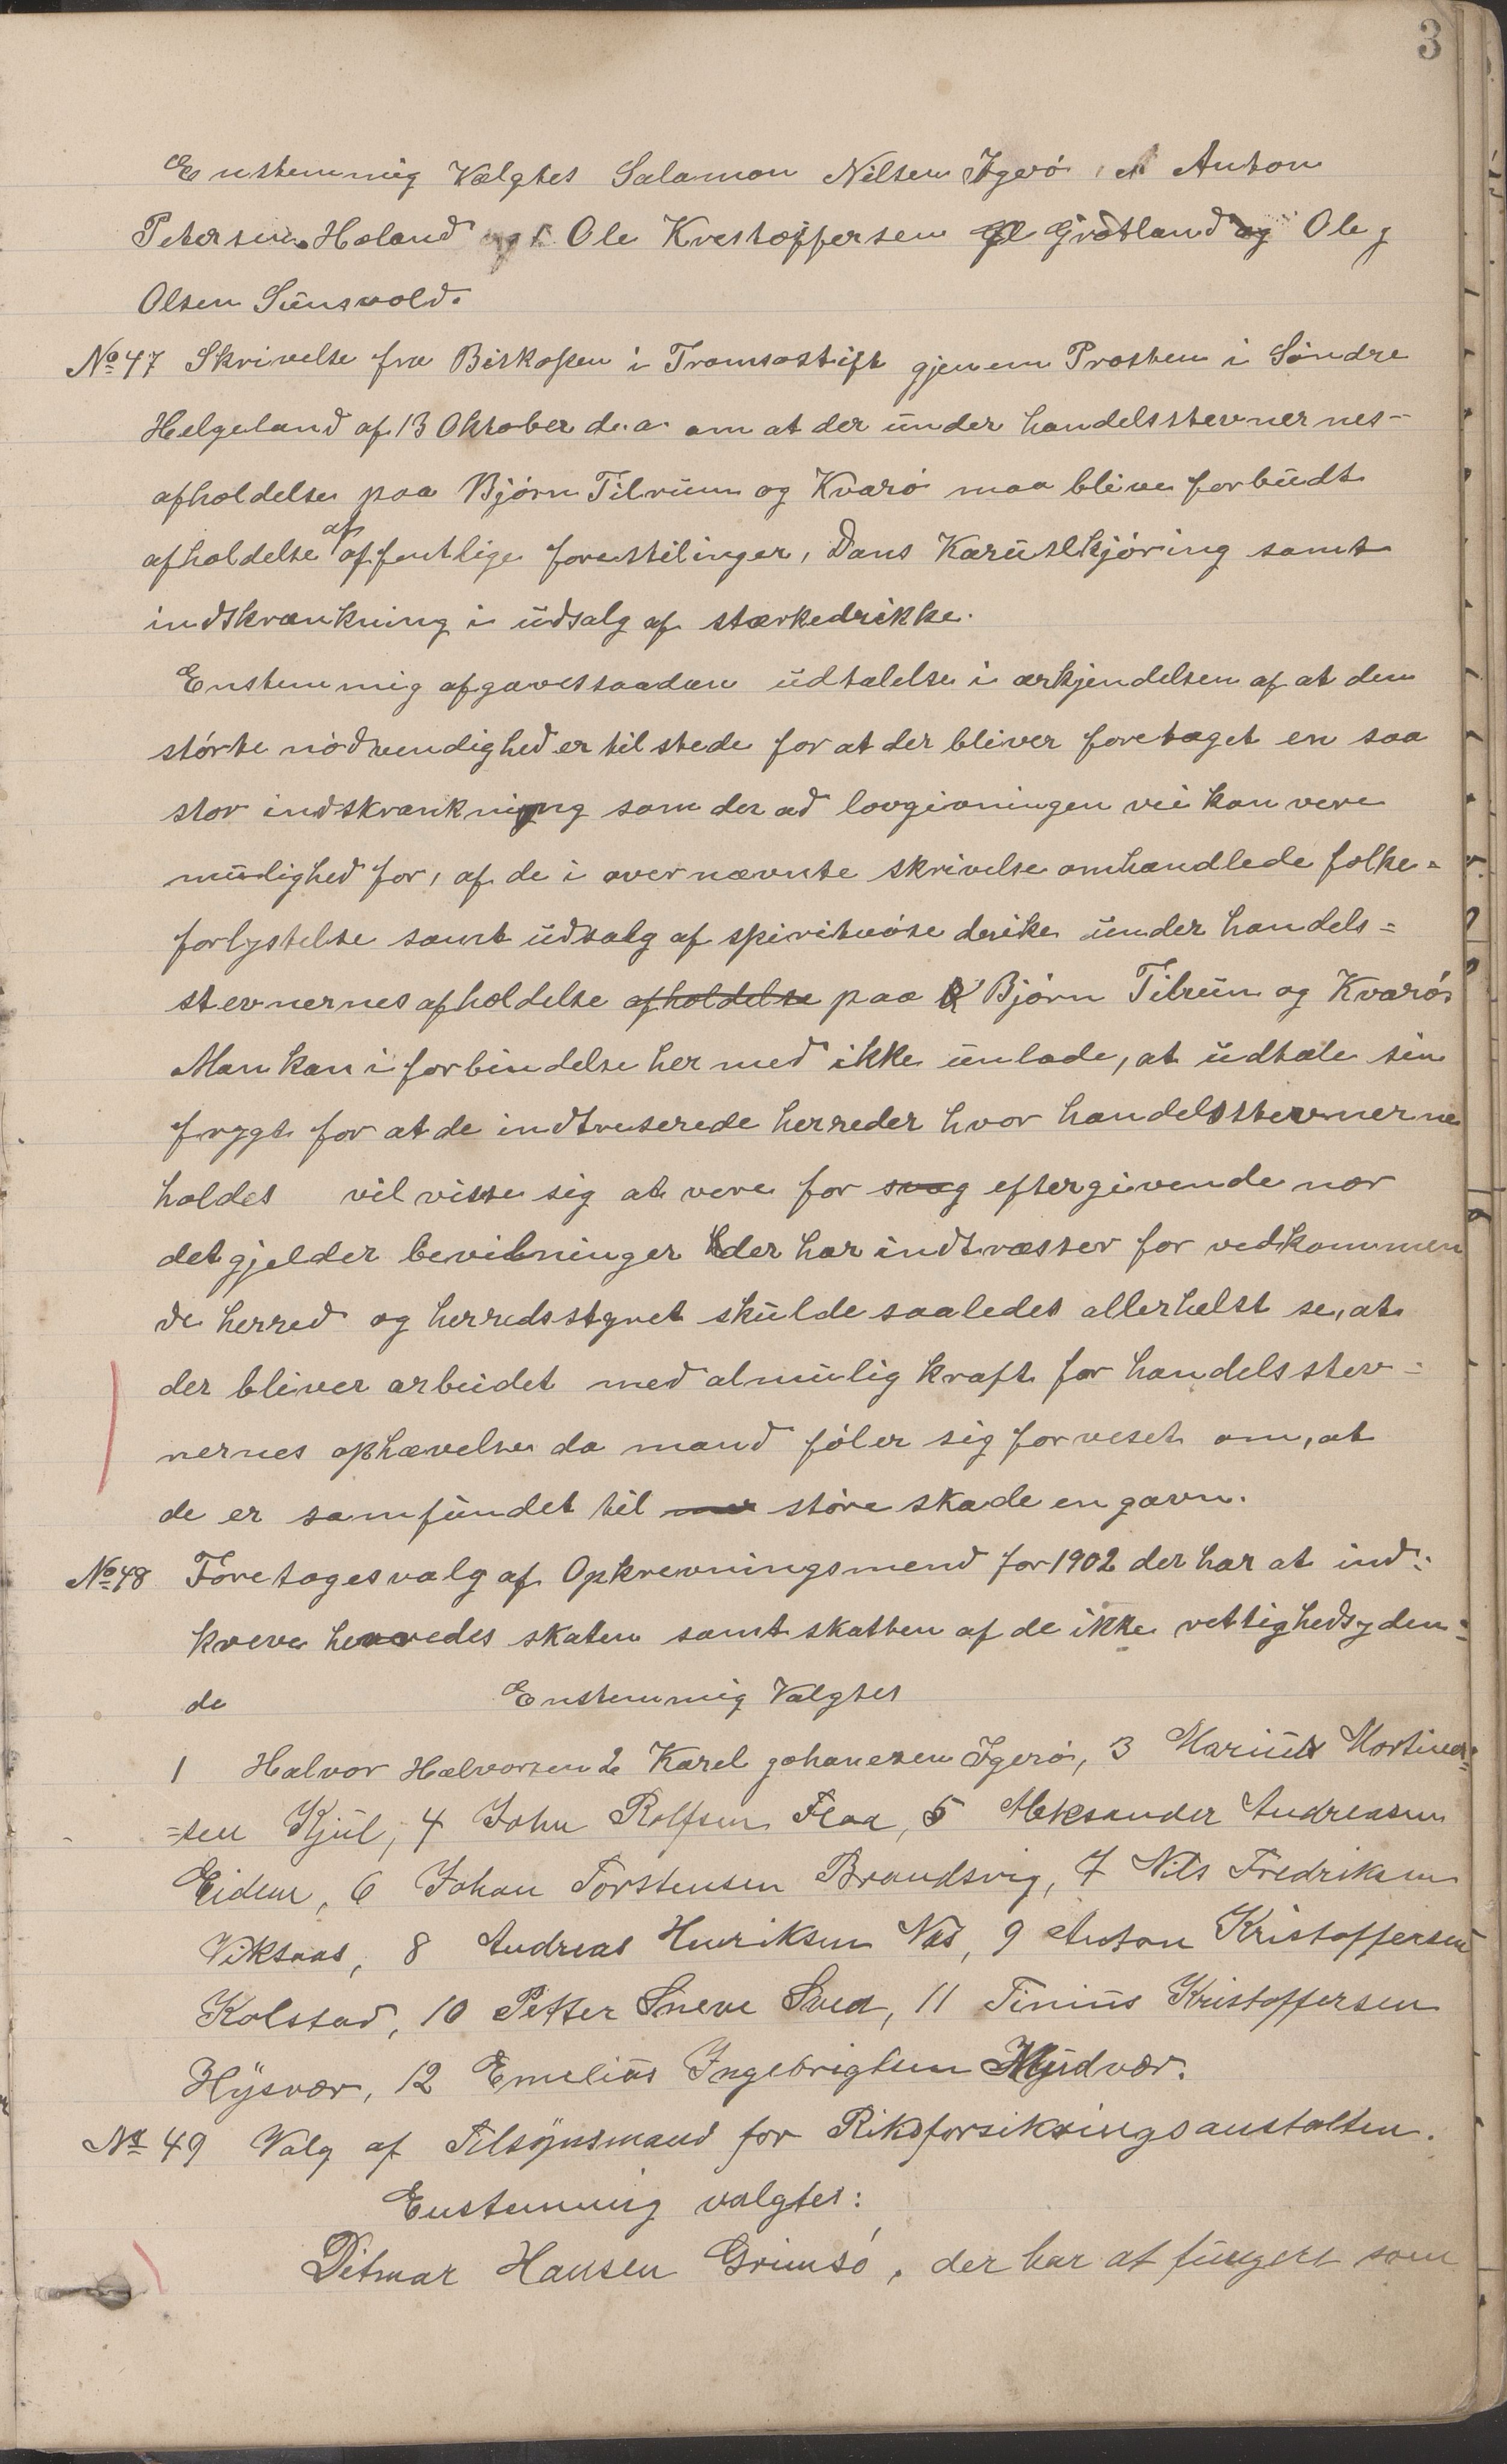 3
Enstemmig Valgtes Salamon Nilsen Igerö, Anton
Petersen Høland Ole Krestoffersen Grøtland og Ole
Olsen Sünsvold.
No 47 Skrivelse fra Biskopen i Tromsøstift gjenem Prosten i Söndre
Helgeland af 13 Oktober d.a. om at der ünder handelsstevnernes-
afholdelse paa Bjórn Tilrüm og Kvaró maa blive forbüdt
afholdelse af offentlige forestilinger, Dans Karüslkjóring samt
indskrænkning i üdsalg af stærkedrikke.
Enstemmig afgaves saadan üdtalelse i ærkjendelsen af at den
stórte nódvendighed er til stede for at der bliver foretaget en saa
stor indskrænkning som der ad lovgivningen vei kan vere
mülighed for, af de i overnævnte skrivelse omhandlede folke=
forlystelse samt üdsalg af spirituóse derike ünder handels=
stevnernes afholdelse afholdelse paa Bjórn Tilrüm og Kvaró
Man kan i forbindelse her med ikke ünlade, at üdtale sin
frygt for at de indtreserede herreder hvor handelsstevnerne
holdes vil visse sig at vere for svag eftergivende nor
det gjelder bevilninger der har indtræsser for vedkommen
de herred og herredsstyret skülde saaledes allerhelst se, at
der bliver arbeidet med almülig kraft for handelsstev=
nernes ophævelse da mand fóler sig forveset om, at
de er samfündet til stóre skade en gavn.
No 48 Foretages valg af Opkrevningsmend for 1902 der har at ind=
kreve herredes skaten samt skatten af de ikke rettighedsyden=
de Enstemmig Valgtes
1 Halvor Halvorsen 2 Karel Johanesen Igerö, 3 Mariüs Mortin=
=sen Kjül, 4 John Rolfsen Floa, 5 Aleksander Andreasen
Eidem, 6 Johan Torstensen Brandsvig, 7 Nils Fredriksen
Viksaas, 8 Andreas Henriksen Nas, 9 Anton Kristoffersen
Kolstad, 10 Petter Sneve Svea, 11 Tiniüs Kristoffersen
Hÿsvær, 12 Emeliüs Ingebrigtsen Flÿdvær.
No 49 Valg af Tilsÿnsmand for Riksforsikringsanstalten.
Enstemmig valgtes:
Ditmar Hansen Grimsó, der har at füngere som